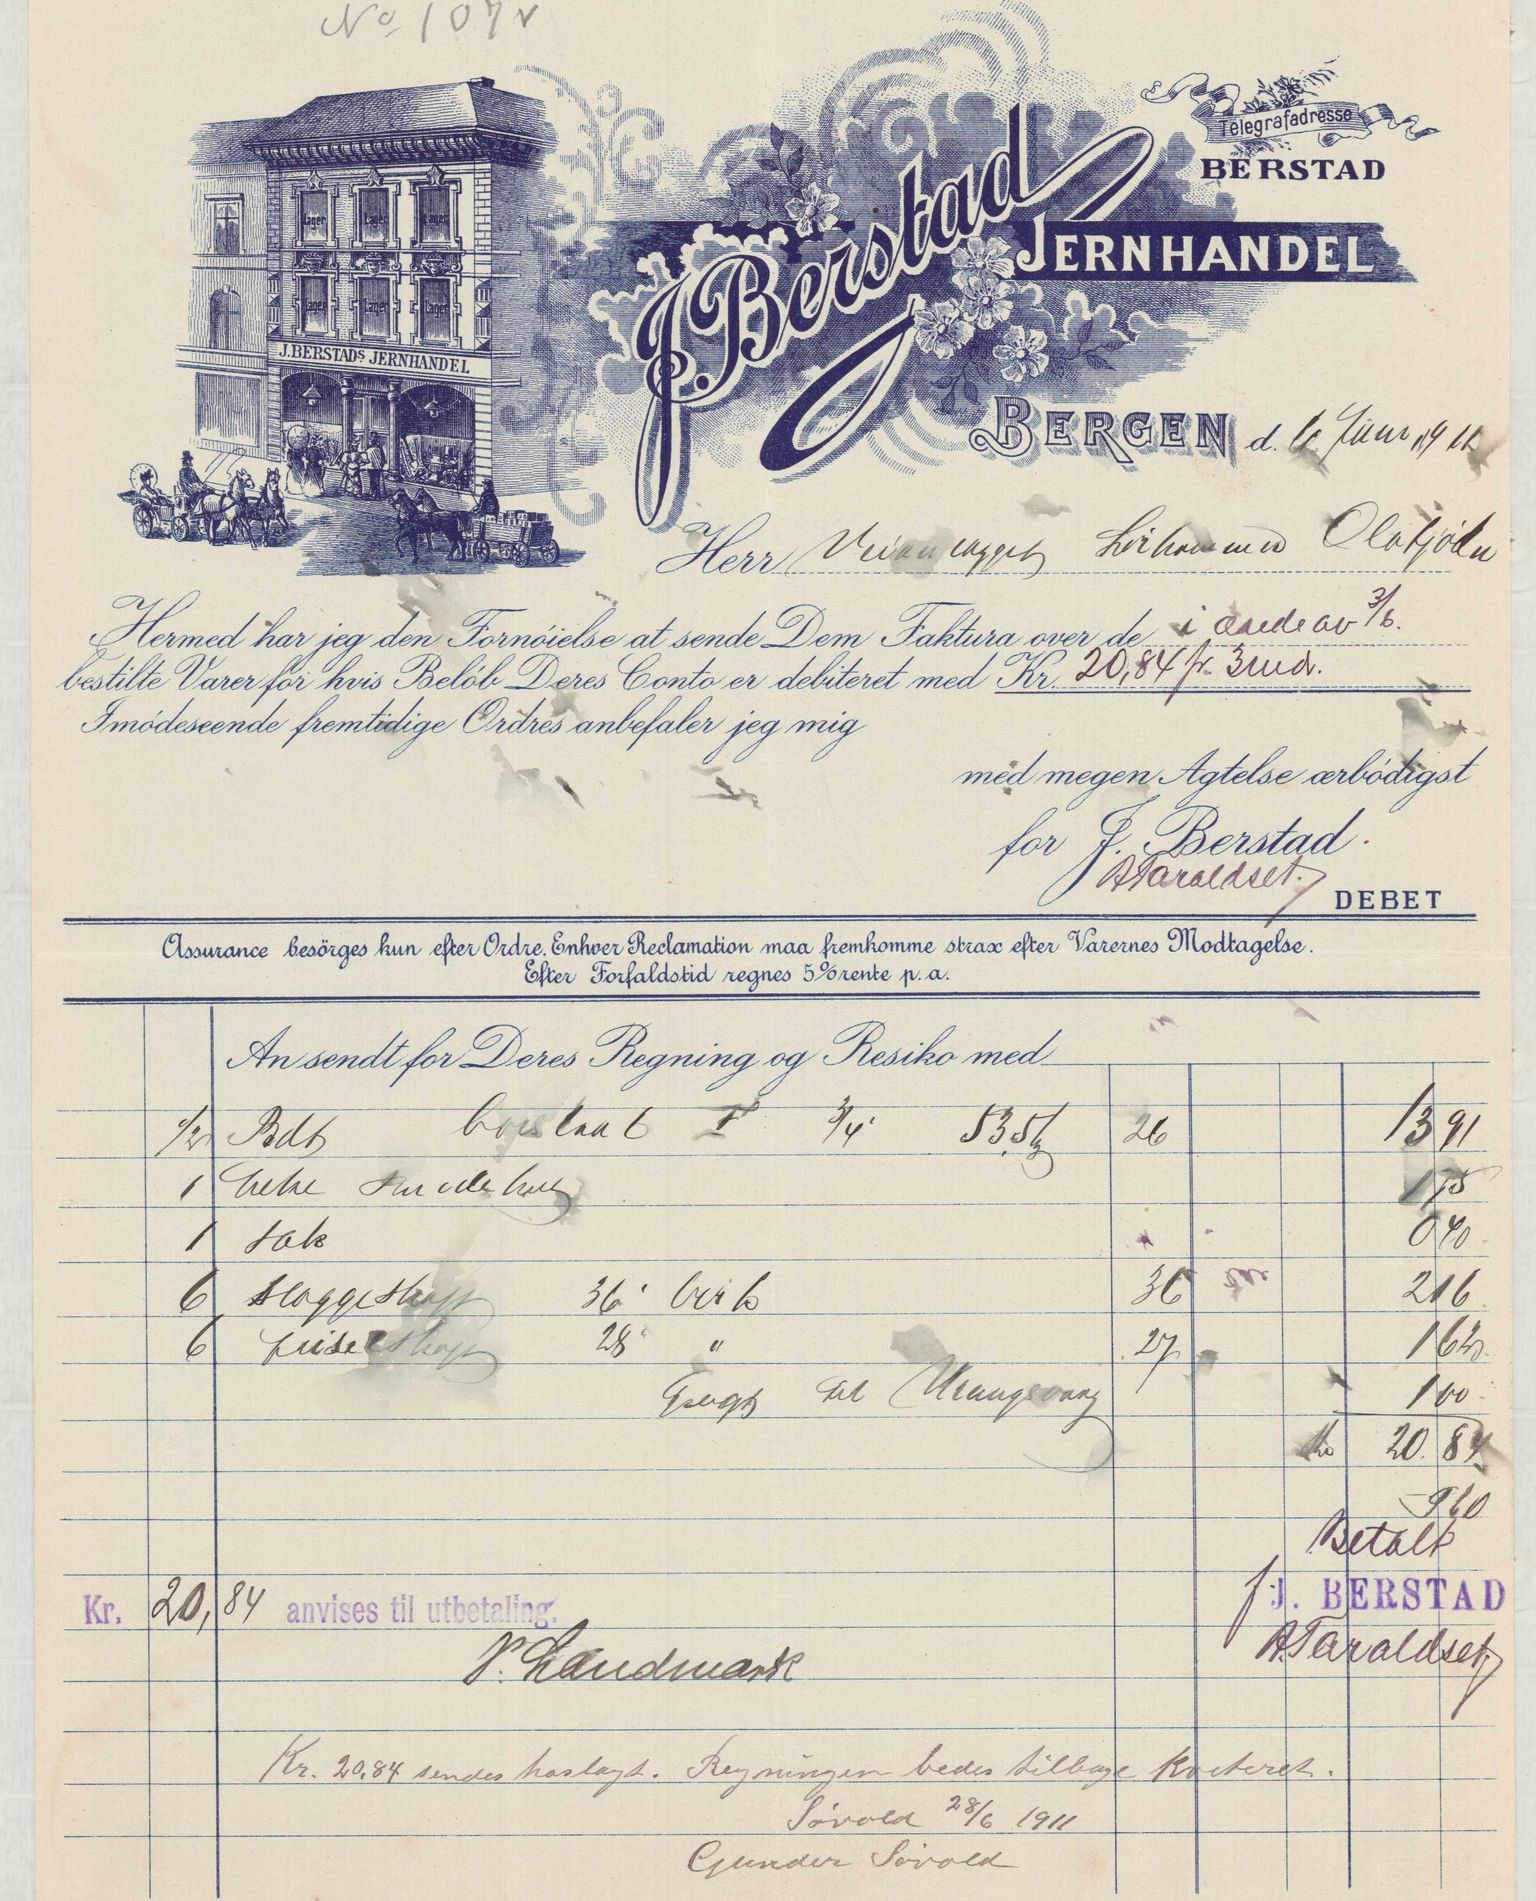 No 107
Telegrafadresse
BERSTAD
J. Berstad
JERNHANDEL
Lager Lager Lager
Lager Lager Lager
J. BERSTADS JERNHANDEL
BERGEN d. 6 Juni 1911
Herr
Hermed har jeg den Fornöielse at sende Dem Faktura over de i ordre av 3/6.
bestilte Varer for hvis Belöb Deres Conto er debiteret med Kr. 20,84 pr. 3 md.
Imödeseende fremtidige Ordres anbefaler jeg mig
med megen Agtelse ærbödigst
for J. Berstad.
A Taraldset.
DEBET
Assurance besörges kun efter Ordre. Enhver Reclamation maa fremkomme strax efter Varernes Modtagelse.
Efter Forfaldstid regnes 5% rente p. a.
An sendt for Deres Regning og Resiko med
1/2 Bdt 3/4" 53,5 26 13 91
1 75
1 sæk 0 40
6 slæggeskaft 36" birk 36 2 16
6 28 " 27 1 62
til 1 00
Kr 20.84
Betalt
f J. BERSTAD
A. Taraldset
Kr. 20,84 anvises til utbetaling.
Landmark
Kr. 20,84 sendes hoslagt. Regningen bedes tilbage kvitteret.
Sövold 28/6 1911
Gunder Sövold